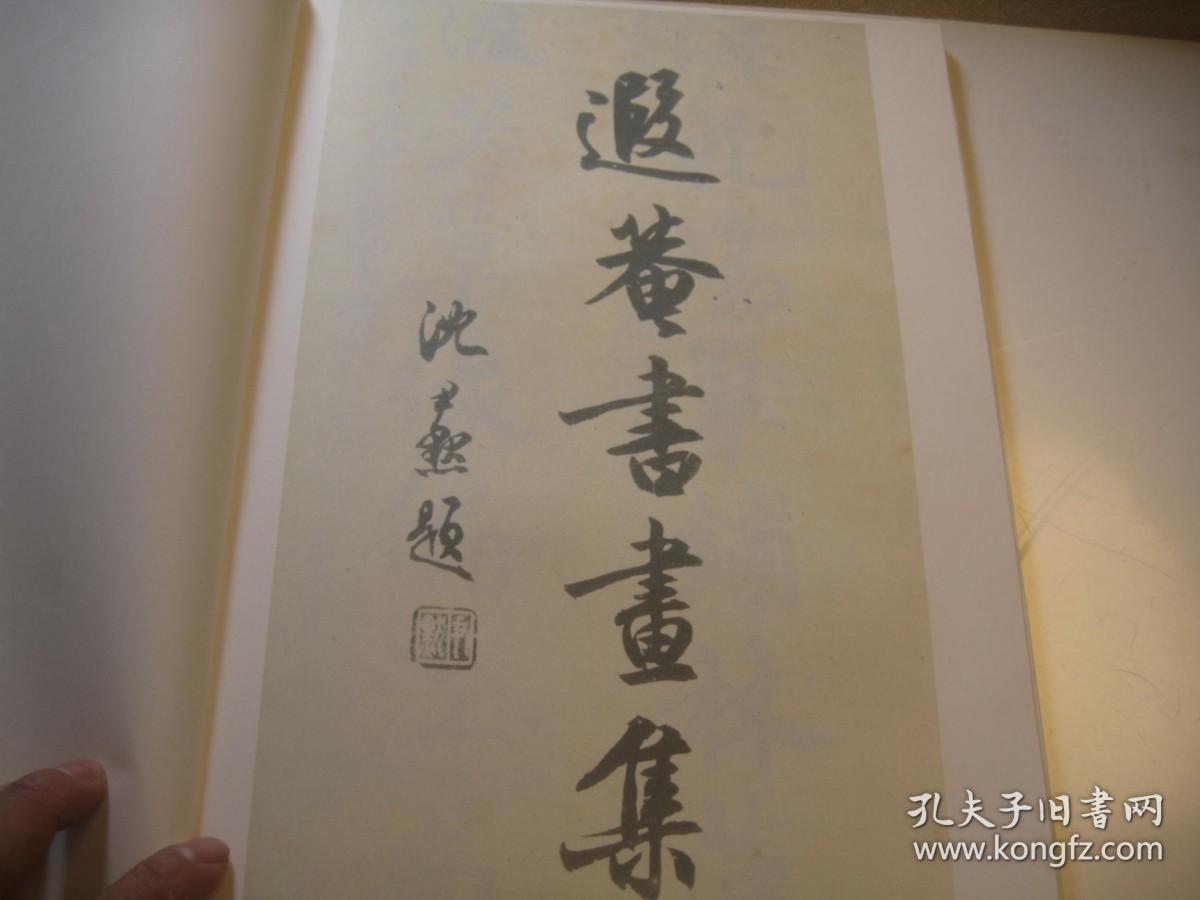 遐菴書畫集
沈尹默題
尹默
孔夫子旧书网
www.kongfz.com